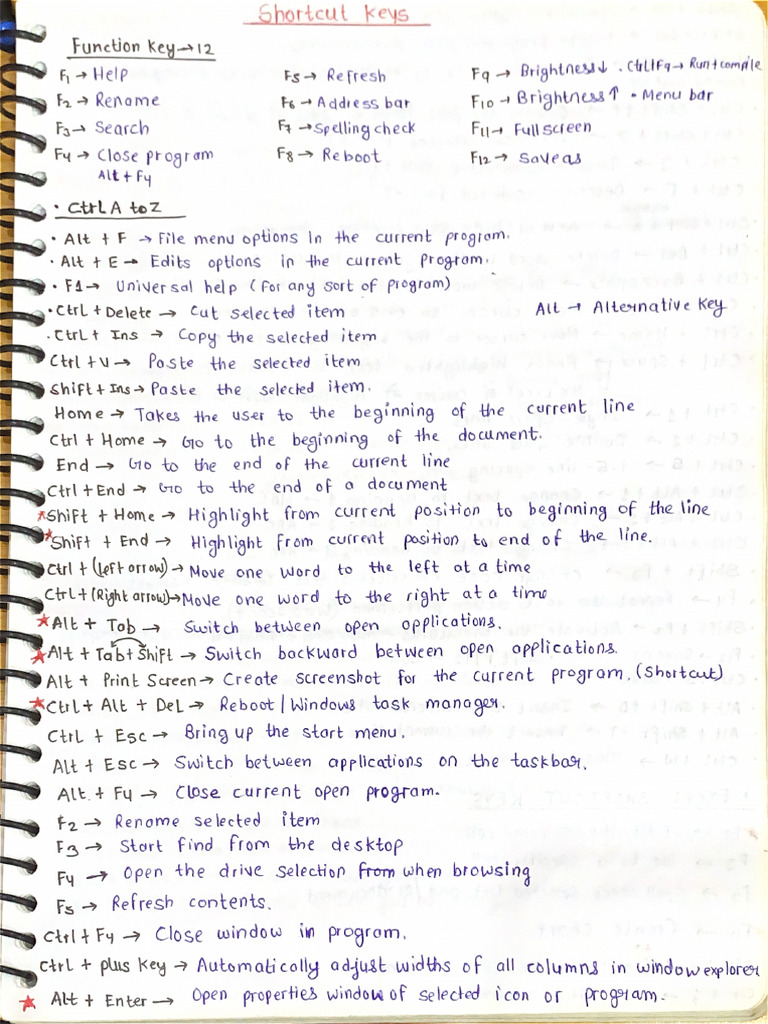 Shortcut Keys
Function Key → 12
F1 → Help
F2 → Rename
F3 → Search
F4 → Close program
Alt + F4
F5 → Refresh
F6 → Address bar
F7 → Spelling check
F8 → Reboot
F9 → Brightness↓ . Ctrl+F9 → Run + compile
F10 → Brightness↑ • Menu bar
F11 → Full screen
F12 → Save as
• Ctrl A to Z
• Alt + F → File menu options in the current program.
• Alt + E → Edits options in the current program.
• F1 → Universal help (for any sort of program)
• Ctrl + Delete → Cut selected item
Alt → Alternative key
. Ctrl + Ins → Copy the selected item
Ctrl + V → Paste the selected item
Shift + Ins → Paste the selected item.
Home → Takes the user to the beginning of the current line
Ctrl + Home → Go to the beginning of the document.
End → Go to the end of the current line
Ctrl + End → Go to the end of a document
★Shift + Home → Highlight from current position to beginning of the line
★Shift + End → Highlight from current position to end of the line.
Ctrl + (Left arrow) → Move one word to the left at a time
Ctrl + (Right arrow) → Move one word to the right at a time
★Alt + Tab → Switch between open applications.
★Alt + Tab + Shift → Switch backward between open applications.
Alt + Print Screen → Create screenshot for the current program. (Shortcut)
★Ctrl + Alt + Del → Reboot / Windows task manager.
Ctrl + Esc → Bring up the start menu.
Alt + Esc → Switch between applications on the taskbar.
Alt + F4 → Close current open program.
F2 → Rename selected item
F3 → Start find from the desktop
F4 → Open the drive selection from when browsing
F5 → Refresh contents.
Ctrl + F4 → Close window in program.
Ctrl + plus Key → Automatically adjust widths of all columns in window explorer
★ Alt + Enter → Open properties window of selected icon or program.